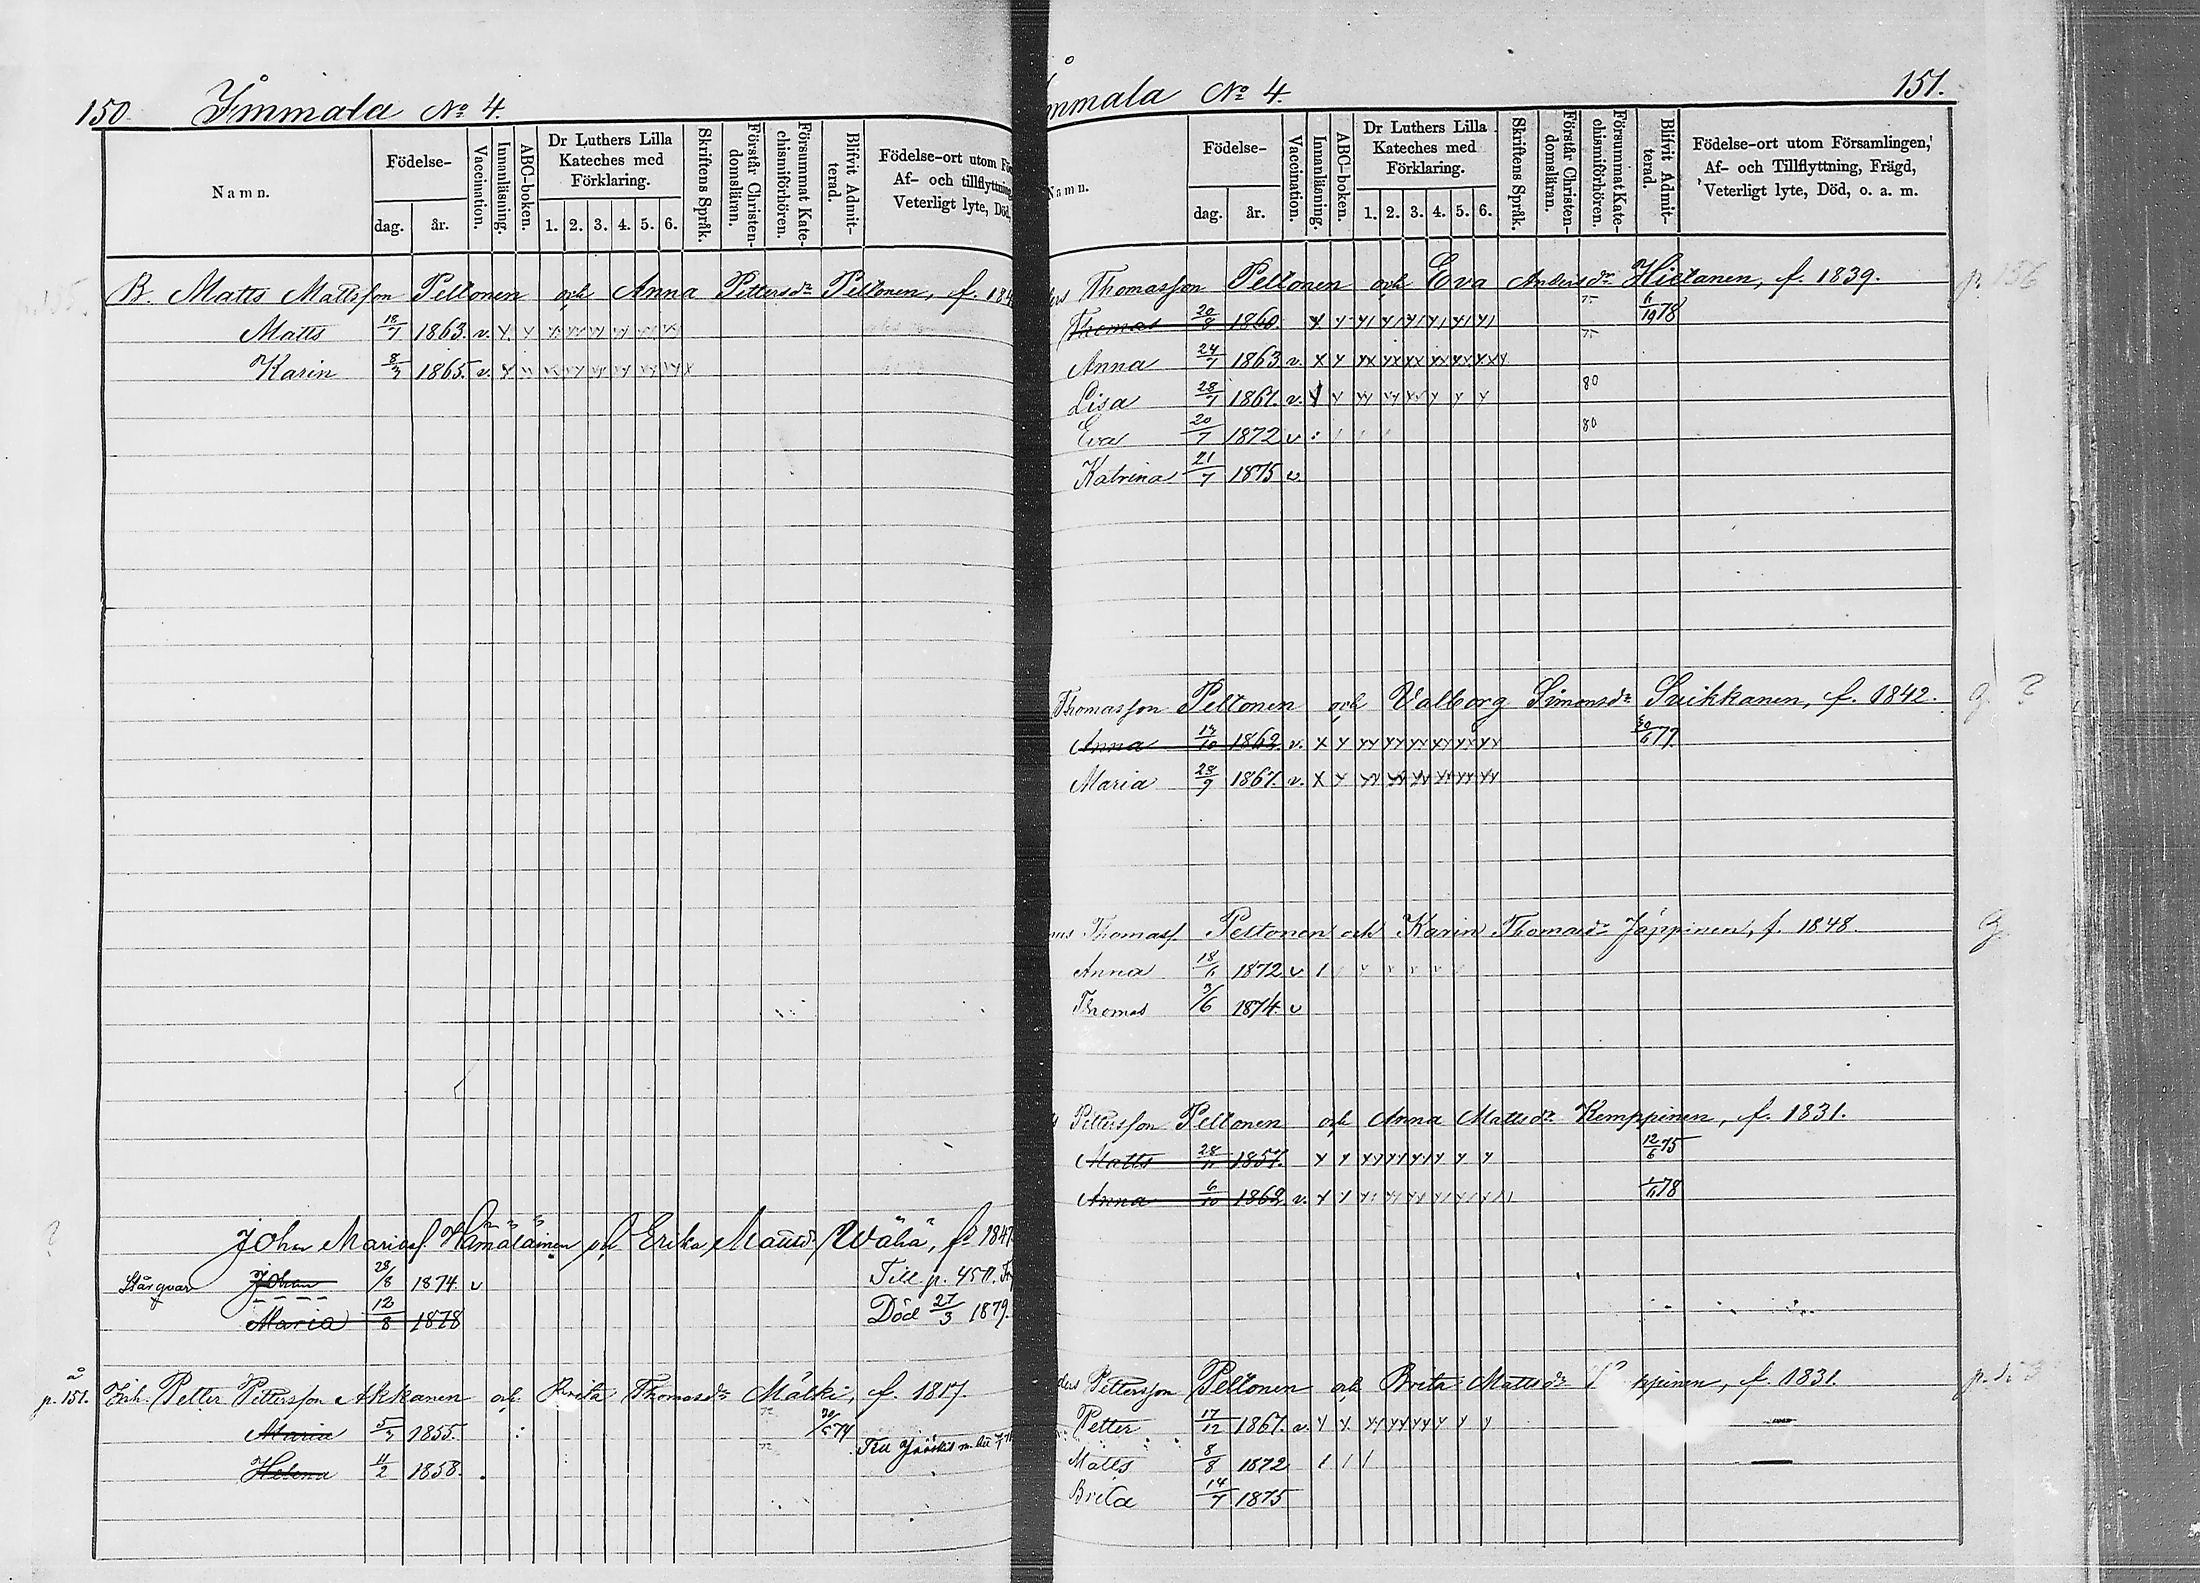 150. Immala No 4.
Namn.
Födelse-
dag.
år.
Vaccination.
Innanläsning.
ABC-boken.
Dr Luthers Lilla Kateches med Förklaring.
1. 2. 3. 4. 5. 6.
Skriftens Språk.
Förstår Christendomsläran.
Försummat Katechismiförhören.
Blifvit Admitterad.
Födelse-ort utom
Af- och tillflyttning
Veterligt lyte, Död,
B. Matts Mattsson Peltonen och Anna Pettersdr Peltonen, f. 184
Matts 18/7 1863. v.
Karin 8/3 1865. v.
Johan Mariasf. Hämäläinen och Erika Wäha, f. 1847
Johan 28/8 1874 v Till p. 457.
Maria 12/8 1878 Död 27/3 1879.
p. 151. Inh. Petter Pettersson Akkanen och Brita Thomasdr Mälki, f. 1817
Maria 5/3 1855. 74
Helena 11/2 1858. Till Jääskis
151.
mmala No 4.
Namn.
Födelse-
dag.
år.
Vaccination.
Innanläsning.
ABC-boken.
Dr Luthers Lilla Kateches med Förklaring.
1. 2. 3. 4. 5. 6.
Skriftens Språk.
Förstår Christendomsläran.
Försummat Katechismiförhören.
Blifvit Admitterad.
Födelse-ort utom Församlingen,
Af- och Tillflyttning, Frägd,
Veterligt lyte, Död, o. a. m.
Thomasson Peltonen och Eva Andersdr Hietanen, f. 1839. p. 156
Thomas 20/8 1860. 6/19 78
Anna 24/7 1863 v.
Lisa 28/7 1867. v. 80
Eva 20/7 1872 v 80
Katrina 21/7 1875 v.
Thomasson Peltonen och Valborg Simonsdr Suikkanen, f. 1842. g ?
Anna 17/10 1862 v. 30/6 77.
Maria 28/9 1867. v.
Thomasf Peltonen och Karin Thomasdr Jäppinen, f. 1848. g
Anna 18/6 1872 v
Thomas 3/6 1874 v
Pettersson Peltonen och Anna Mattsdr Kemppinen, f. 1831.
Matts 28/11 1857. 12/6 75
Anna 6/10 1862 v. 78
Pettersson Peltonen och Brita Mattsdr ppinen, f. 1831.
Petter 17/12 1867. v.
Matts 8/8 1872
Brita 14/7 1875